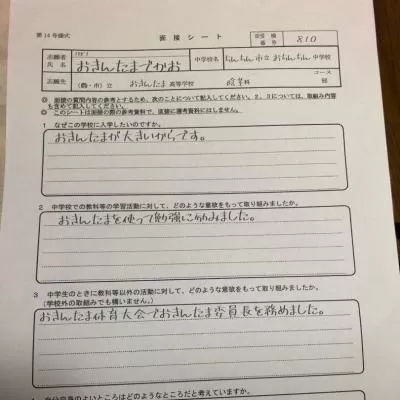 第14号様式
面接シート
受検番号 810
志願者氏名 おきんたまでかお 中学校名 ちんちん市立おちんちん中学校
志願先 (県・市)立 おきんたま高等学校 陰茎科 コース 部
◎ 面接の質問内容の参考とするため、次のことについて記入してください。2、3については、取組み内容
も含めて記入してください。
◎ このシートは面接の際の参考資料で、直接に選考資料にはしません。
1 なぜこの学校に入学したいのですか。
おきんたまが大きいからです。
2 中学校での教科等の学習活動に対して、どのような意欲をもって取り組みましたか。
おきんたまを使って勉強に励みました。
3 中学生のときに教科等以外の活動に対して、どのような意欲をもって取り組みましたか。
(学校外の取組みでも構いません。)
おきんたま体育大会でおきんたま委員長を務めました。
自分自身のよいところはどのようなところだと考えていますか。